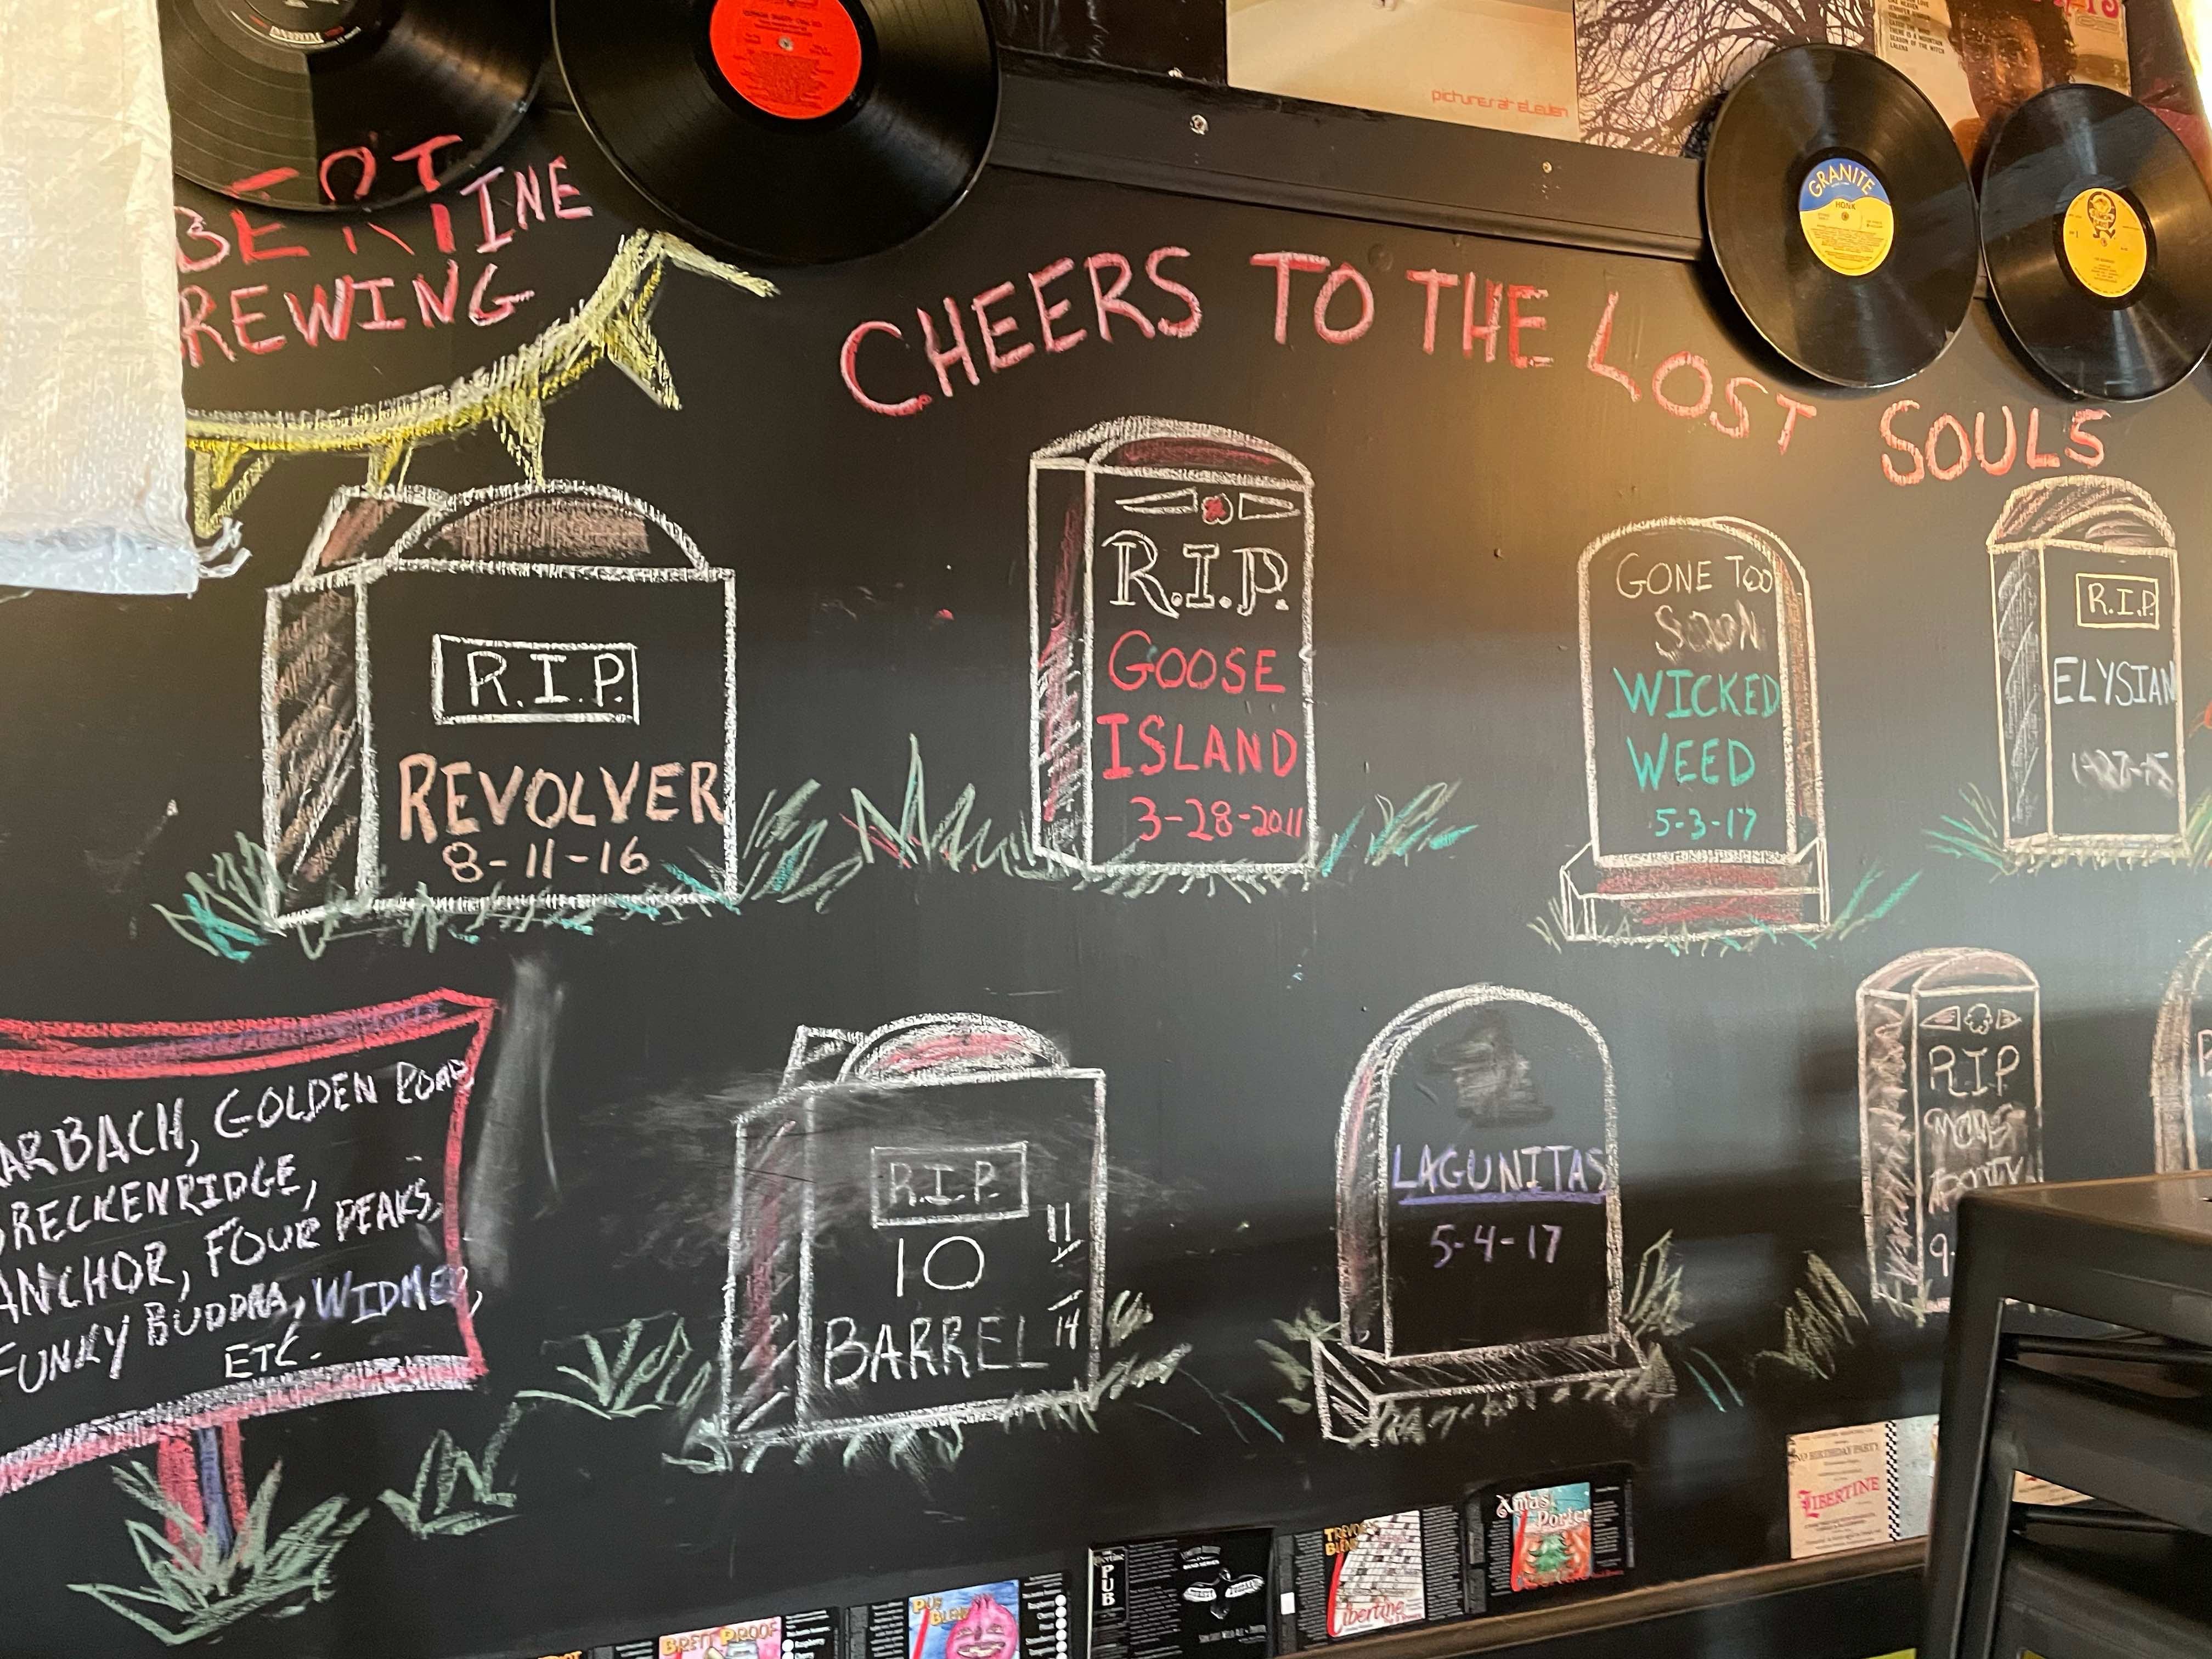 pictures at eleven
GRANITE
HONK
INE
REWING
CHEERS TO THE LOST SOULS
R.I.P.
REVOLVER
8-11-16
R.I.P.
GOOSE
ISLAND
3-28-2011
GONE TOO
SOON
WICKED
WEED
5-3-17
R.I.P.
ELYSIAN
ARBACH, GOLDEN ROAD,
BRECKENRIDGE,
ANCHOR, FOUR PEAKS,
FUNKY BUDDHA, WIDMER,
ETC.
R.I.P.
10
BARREL
11
14
LAGUNITAS
5-4-17
RIP
9-
BIRTHDAY PARTY
LIBERTINE
Xmas
Porter
TREVOR'S
BLEND
Libertine
PUB
BRETT PROOF
Raspberry